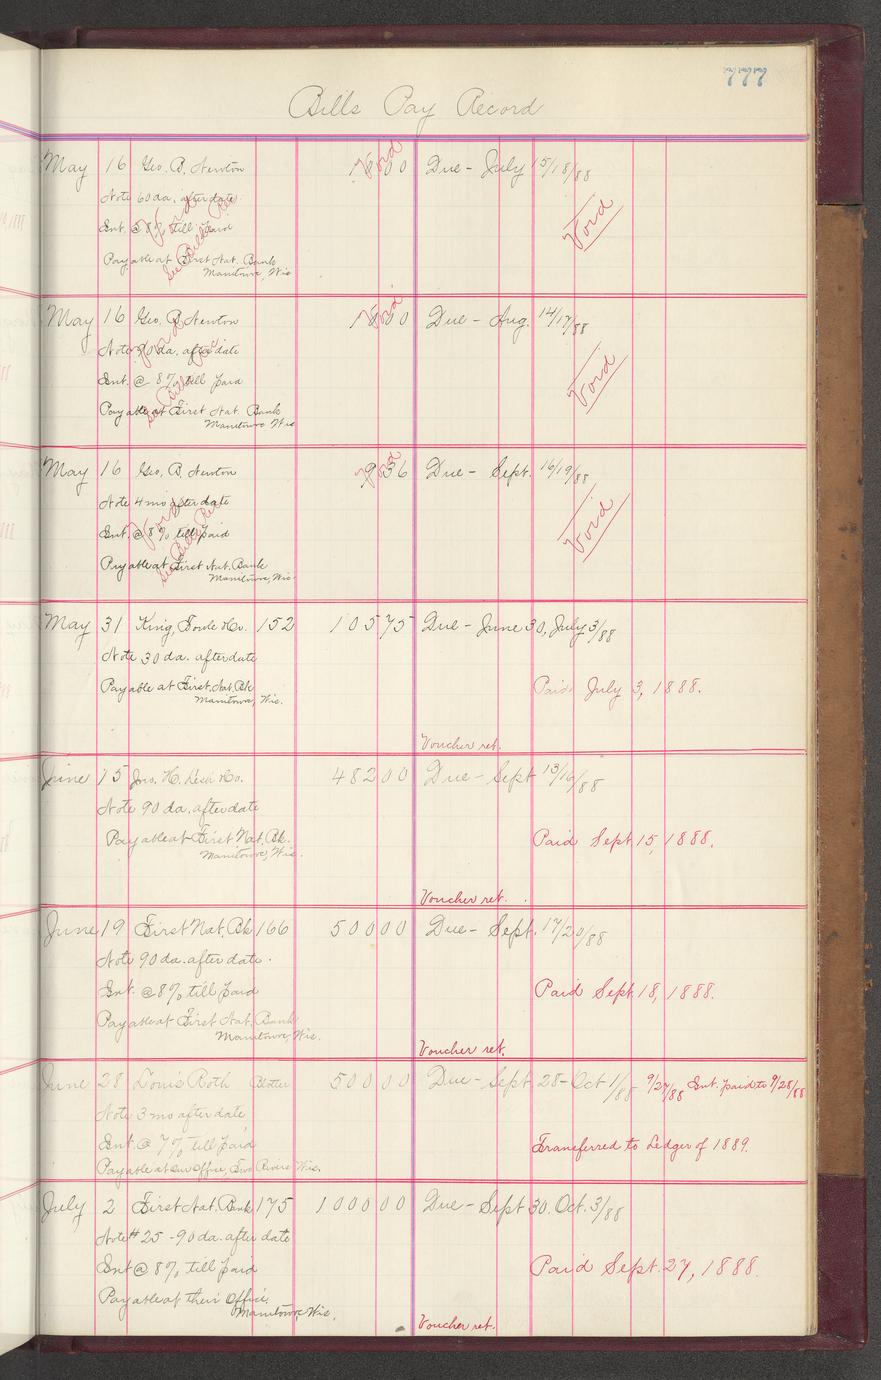 777
Bills Pay Record
May 16 Geo. B. Newton Void Due - July 15/18/88
Note 60 da. after date
Int. @ 8% till paid Void
Void
Payable at First Nat. Bank
Manitowoc, Wis
May 16 Geo. B. Newton Void Due - Aug. 14/17/88
Note 90 da. after date
Int. @ 8% till paid Void
Void
Payable at First Nat. Bank
Manitowoc Wis
May 16 Geo. B. Newton 936 Void Due - Sept. 16/19/88
Note 4 mo after date
Int. @ 8% till paid Void
Void
Payable at First Nat. Bank
Manitowoc, Wis
May 31 King, Fowle & Co. 152 105 75 Due - June 30, July 3/88
Note 30 da. after date
Payable at First. Nat. Bk Paid July 3, 1888.
Manitowoc, Wis.
Voucher ret.
June 15 Jno. H. Lesh & Co. 482 00 Due - Sept 13/16/88
Note 90 da. after date
Payable at First Nat. Bk. Paid Sept. 15, 1888.
Manitowoc, Wis.
Voucher ret.
June 19 First Nat. Bk 166 500 00 Due - Sept. 17/20/88
Note 90 da. after date.
Int. @ 8% till paid Paid Sept. 18, 1888.
Payable at First Nat. Bank
Manitowoc, Wis.
Voucher ret.
June 28 Louis Roth Blotter 500 00 Due - Sept. 28 - Oct 1/88 9/27/88 Int. paid to 9/28/88
Note 3 mo after date
Int. @ 7% till paid Transferred to Ledger of 1889.
Payable at our office, Two Rivers Wis.
July 2 First Nat. Bank 175 1000 00 Due - Sept 30. Oct. 3/88
Note # 25 - 90 da. after date
Int @ 8% till paid Paid Sept. 27, 1888.
Payable at their Office.
Manitowoc, Wis.
Voucher ret.